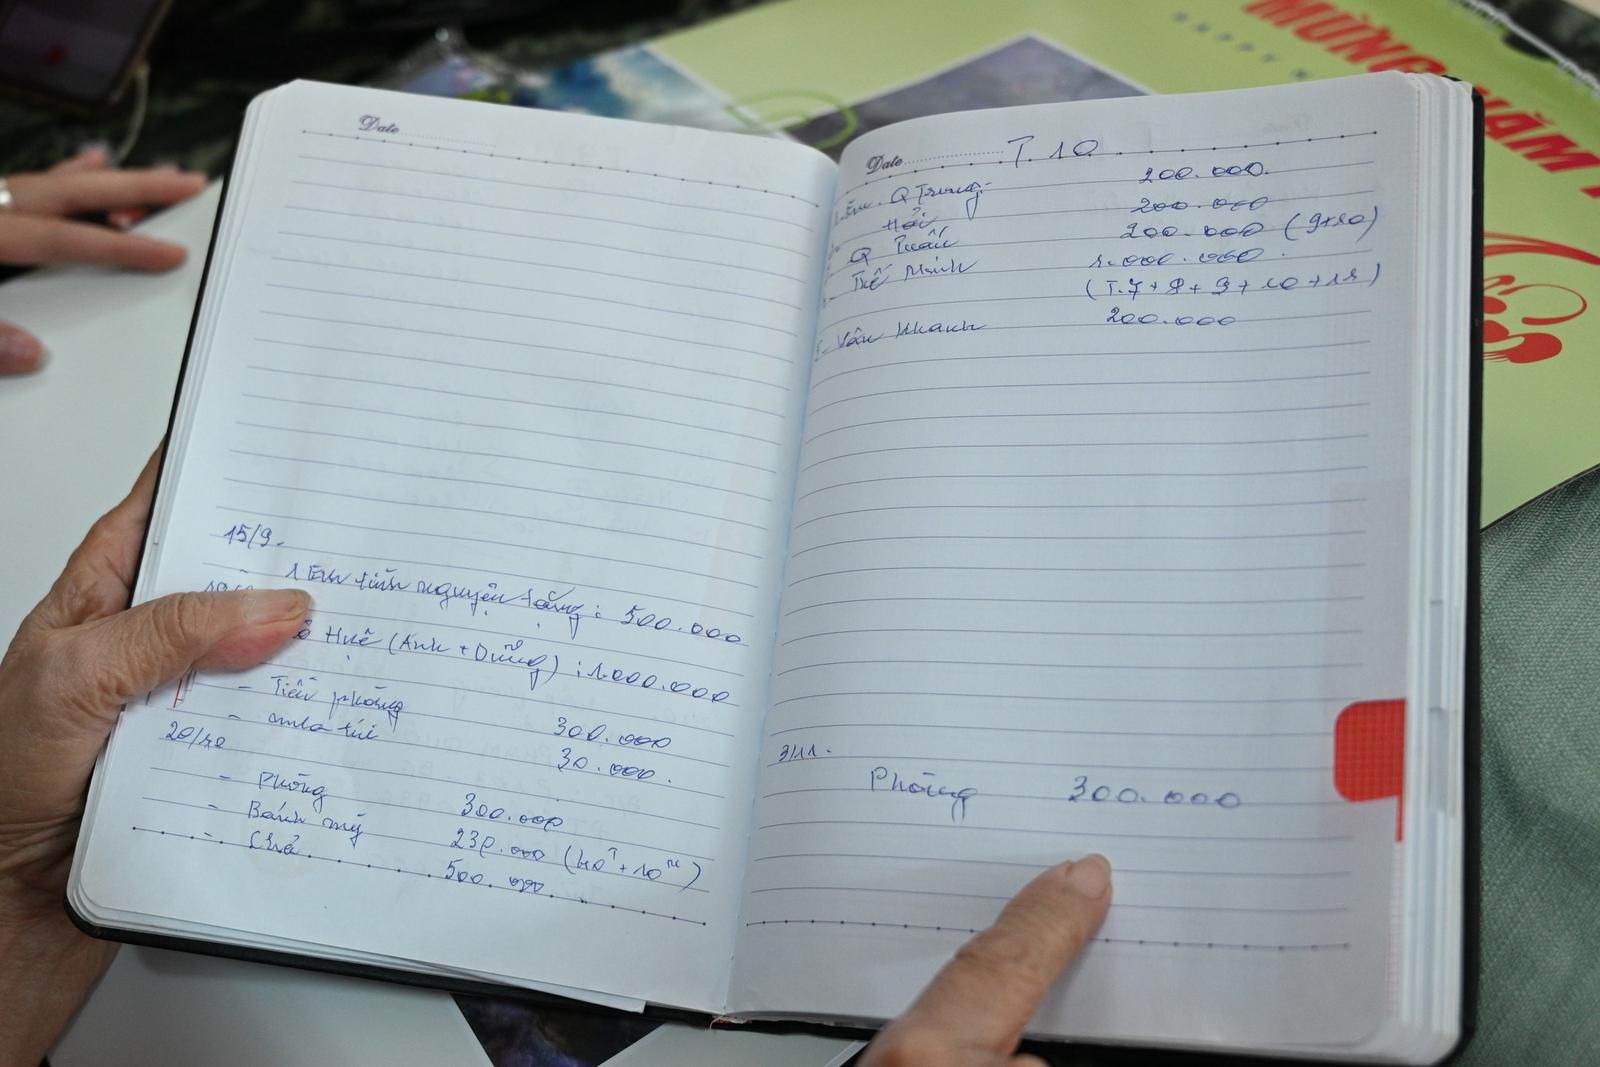 Date
15/9.
nguyện : 500.000
Huê (Anh + Dũng) : 1.000.000
- Tiền phòng 300.000
- mua túi 30.000.
20/10
- Phòng 300.000
- Bánh mỳ 230.000
- Chả 500.000
Date T.10
Q Trung 200.000.
Hải 200.000
Q Tuấn 200.000 (9+10)
Thế Minh 1.000.000.
(T.7+8+9+10+11)
5. Vân Khanh 200.000
3/11.
Phòng 300.000
MỪNG NĂM